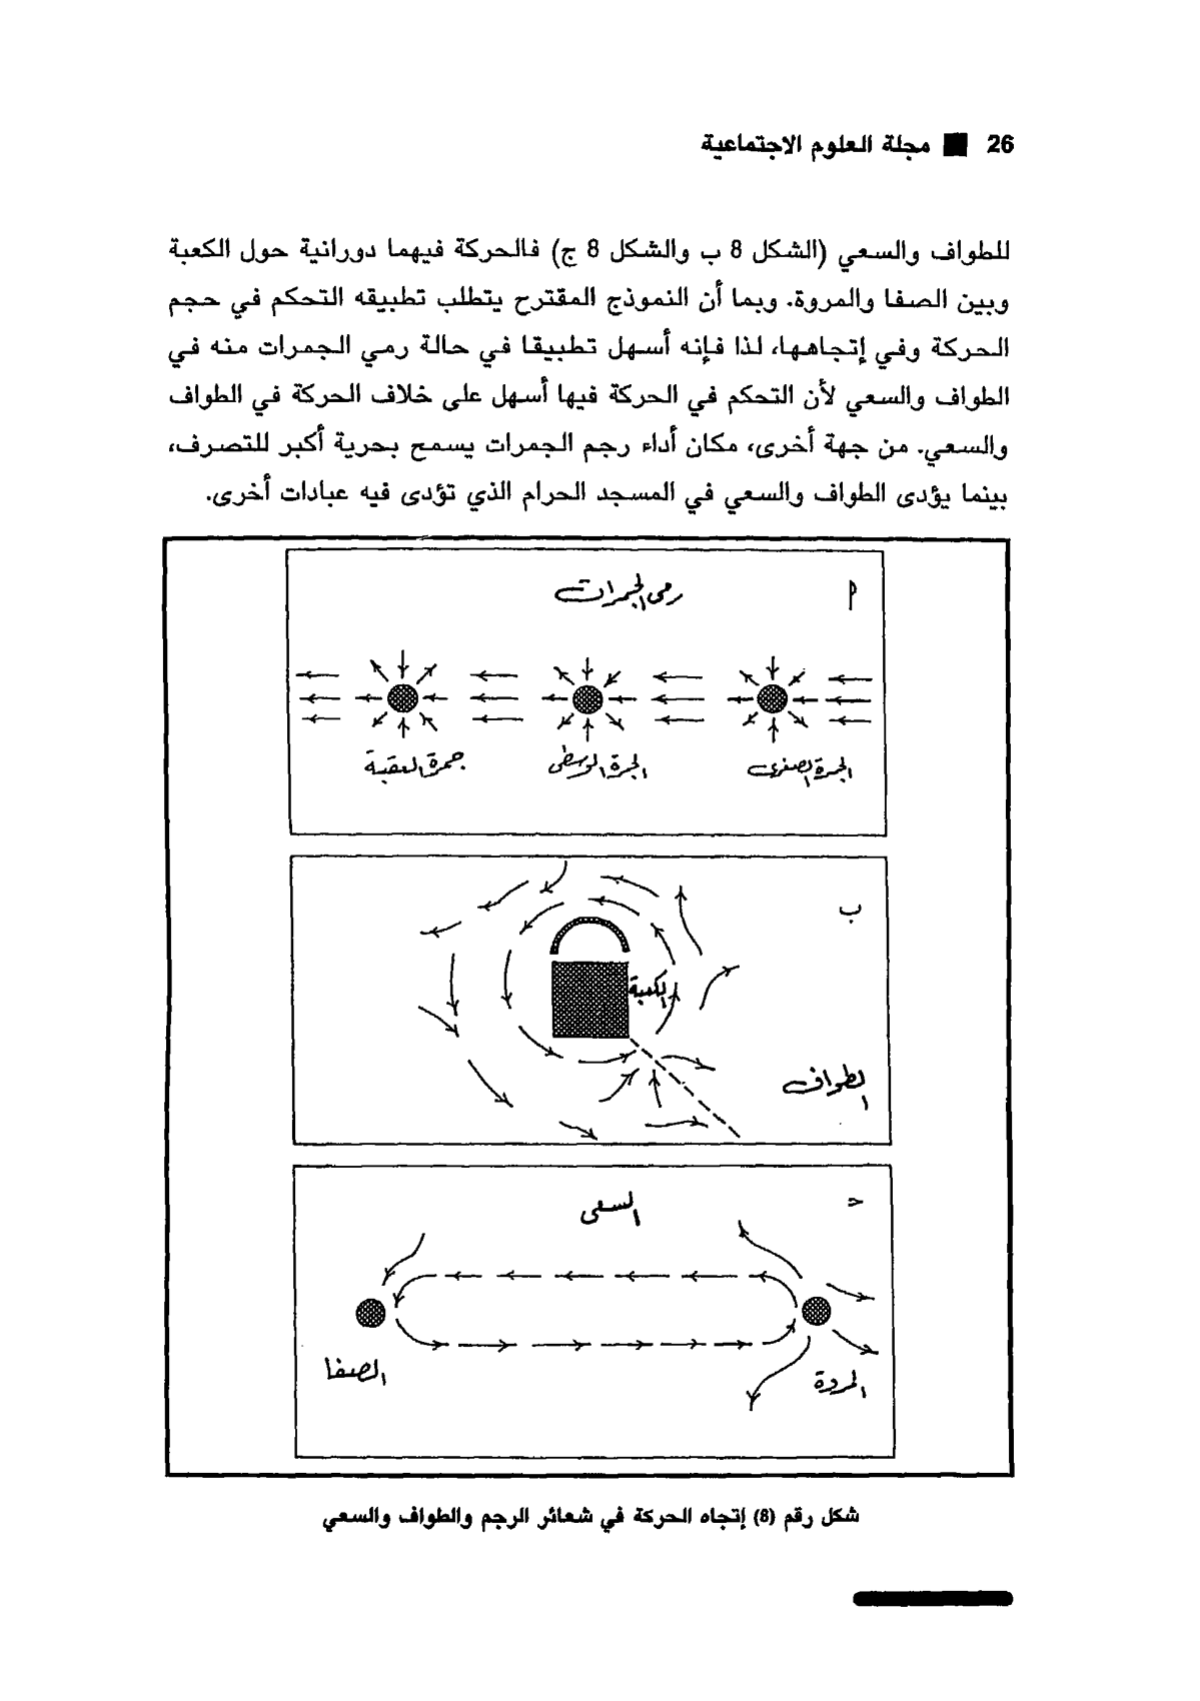 26 ■ مجلة العلوم الاجتماعية
للطواف والسعي (الشكل 8 ب والشكل 8 ج) فالحركة فيهما دورانية حول الكعبة
وبين الصفا والمروة. وبما أن النموذج المقترح يتطلب تطبيقه التحكم في حجم
الحركة وفي إتجاهها، لذا فإنه أسهل تطبيقا في حالة رمي الجمرات منه في
الطواف والسعي لأن التحكم في الحركة فيها أسهل على خلاف الحركة في الطواف
والسعي. من جهة أخرى، مكان أداء رجم الجمرات يسمح بحرية أكبر للتصرف،
بينما يؤدى الطواف والسعي في المسجد الحرام الذي تؤدى فيه عبادات أخرى.
أ
رمى الجمرات
الجمرة الصغرى
الجمرة الوسطى
جمرة العقبة
ب
الكعبة
الطواف
ح
السعى
الصفا
المروة
شكل رقم (8) إتجاه الحركة في شعائر الرجم والطواف والسعي